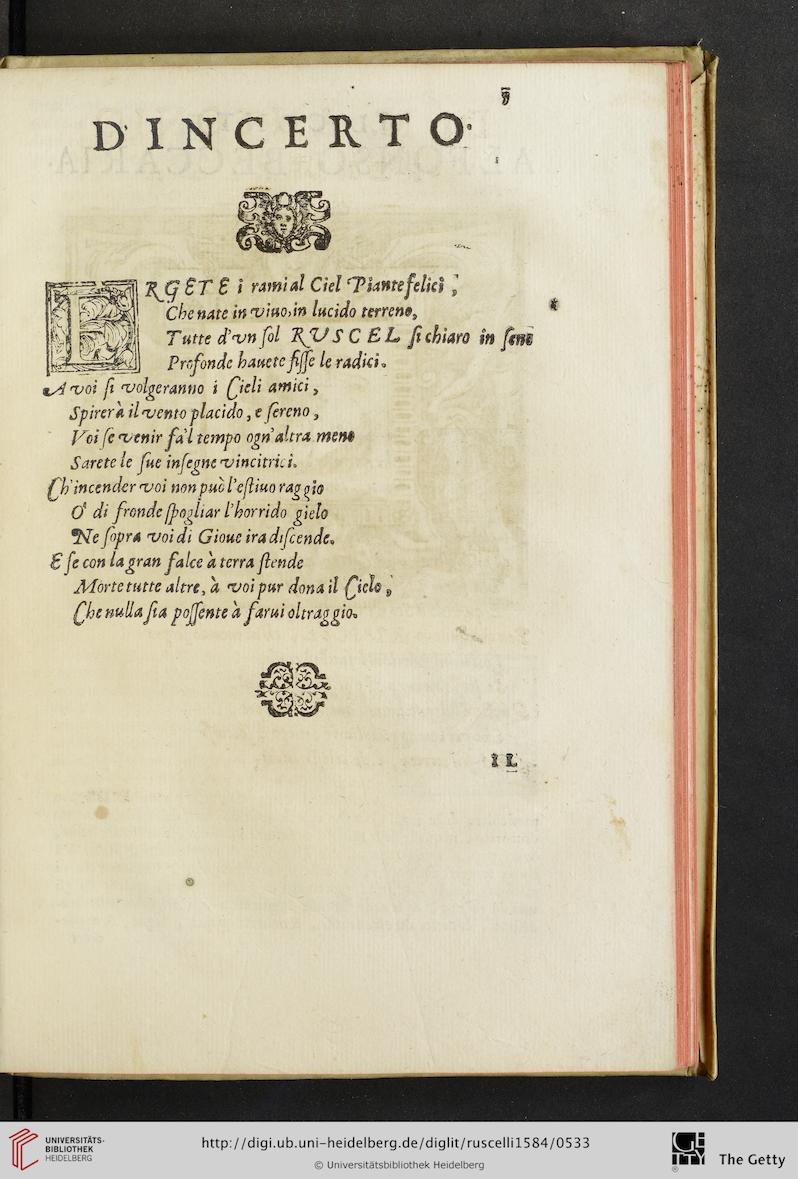 D'INCERTO.
ERGETE i rami al Ciel Piante felici,
Che nate in viuo, in lucido terreno,
Tutte d'vn sol RVSCEL si chiaro in seno
Profonde hauete fisse le radici.
A voi si volgeranno i Cieli amici,
Spirerà il vento placido, e sereno,
Voi se venir fà'l tempo ogn'altra meno
Sarete le sue insegne vincitrici.
Ch'incender voi non può l'estiuo raggio
O' di fronde spogliar l'horrido gielo
Ne sopra voi di Gioue ira discende.
E se con la gran falce à terra stende
Morte tutte altre, à voi pur dona il Cielo,
Che nulla sia possente à farui oltraggio.
IL
UNIVERSITÄTS-
BIBLIOTHEK
HEIDELBERG
http://digi.ub.uni-heidelberg.de/diglit/ruscelli1584/0533
© Universitätsbibliothek Heidelberg
GETTY
The Getty